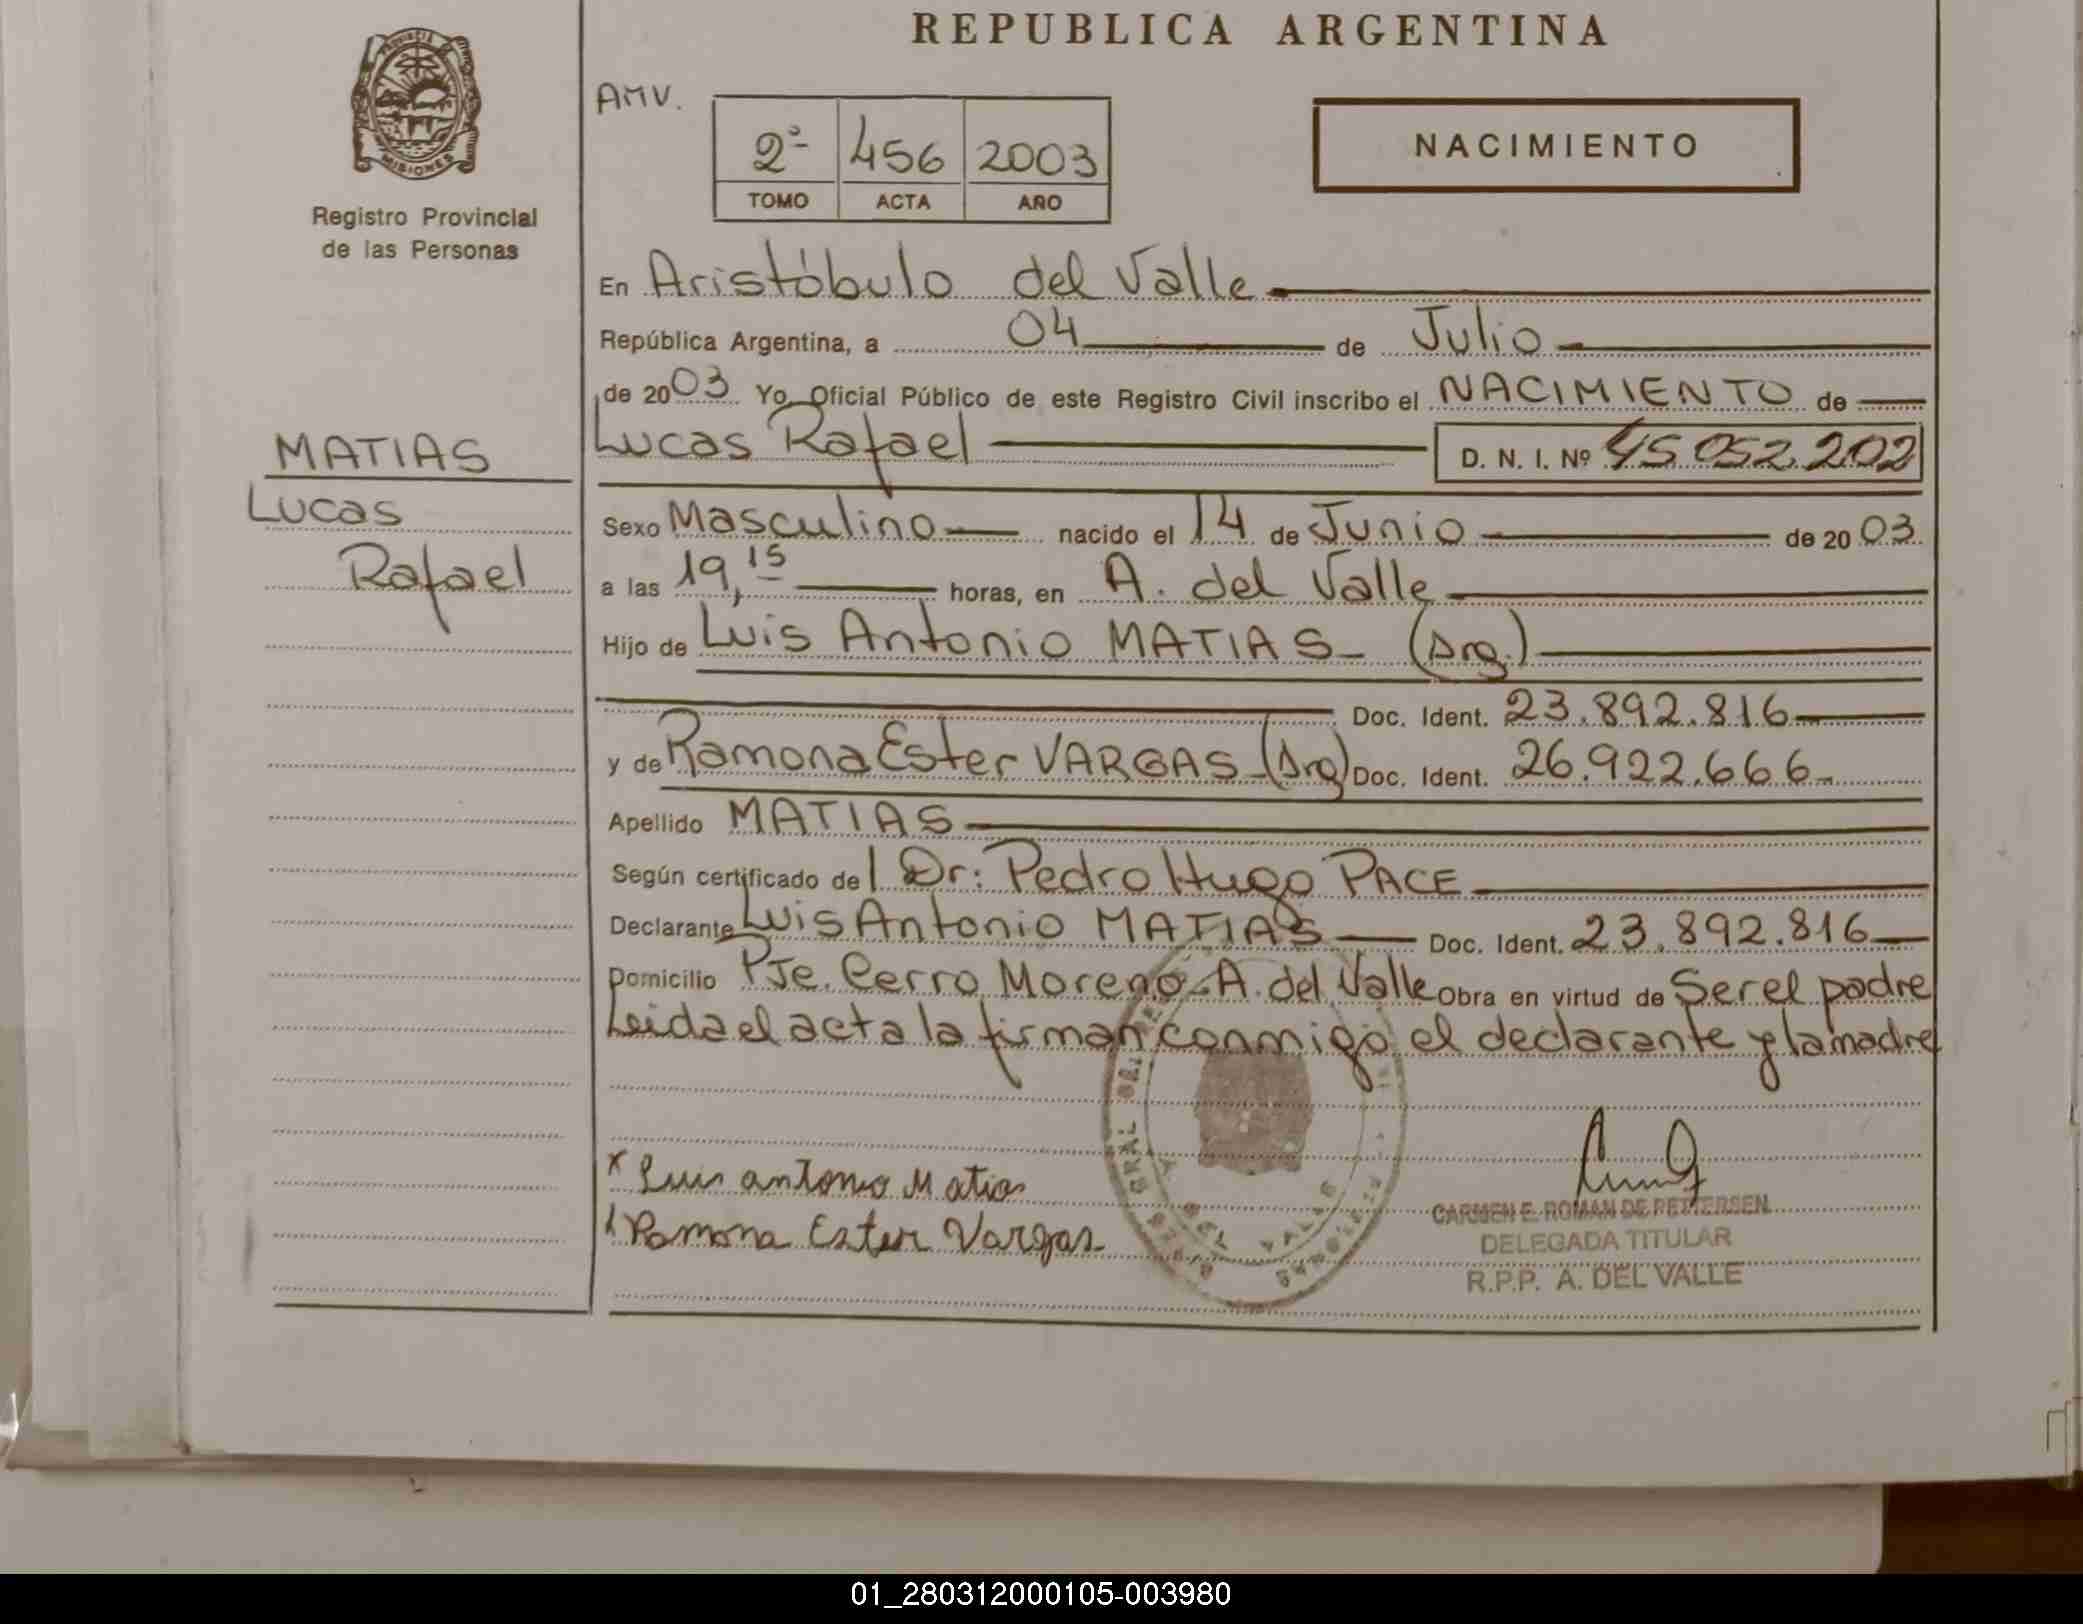 REPUBLICA ARGENTINA
MISIONES
Registro Provincial
de las Personas
AMV.
2º 456 2003
TOMO ACTA AÑO
NACIMIENTO
En Aristóbulo del Valle
República Argentina, a 04 de Julio
de 2003 Yo, Oficial Público de este Registro Civil inscribo el NACIMIENTO de
Lucas Rafael D. N. I. Nº 45.052.202
MATIAS
Lucas
Rafael
Sexo Masculino nacido el 14 de Junio de 2003
a las 19,15 horas, en A. del Valle
Hijo de Luis Antonio MATIAS (Arg.)
Doc. Ident. 23.892.816
y de Ramona Ester VARGAS (Arg) Doc. Ident. 26.922.666
Apellido MATIAS
Según certificado del Dr: Pedro Hugo PACE
Declarante Luis Antonio MATIAS Doc. Ident. 23.892.816
Domicilio Pje. Cerro Moreno - A. del Valle Obra en virtud de Ser el padre
Leida el acta la firman conmigo el declarante y la madre
x Luis antonio Matias
x Ramona Ester Vargas
DEL VALLE
MISIONES
CARMEN E. ROMAN DE PETTERSEN
DELEGADA TITULAR
R.P.P. A. DEL VALLE
01_280312000105-003980